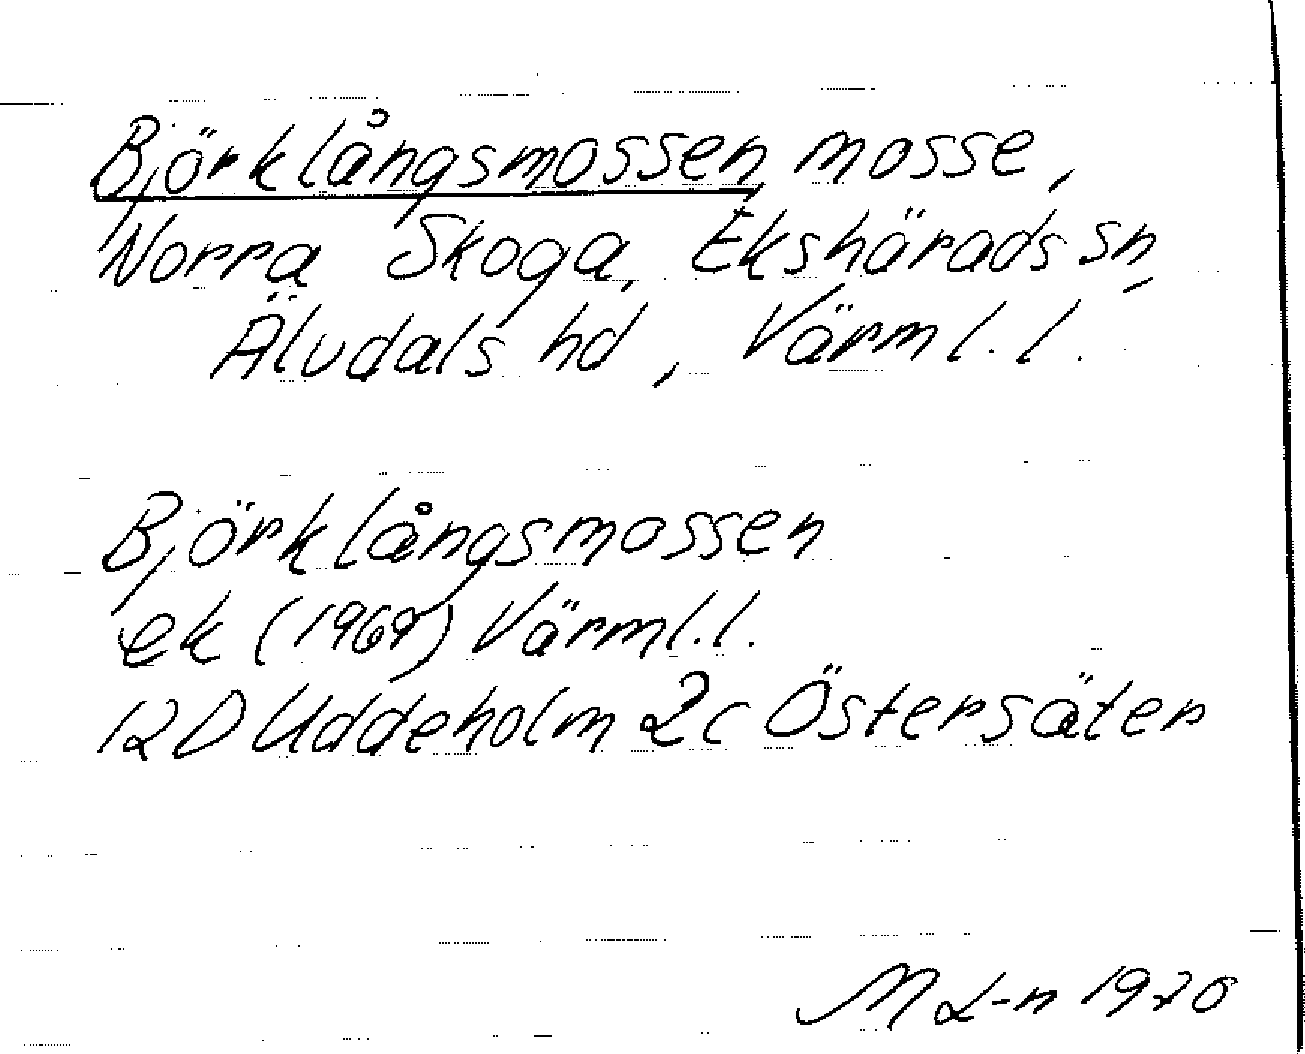 Björklångsmossen, mosse,
Norra Skoga, Ekshärads sn,
Älvdals hd, Värml. l.
Björklångsmossen
ek (1969) Värml. l.
12D Uddeholm 2c Östersäter
M L-n 1970